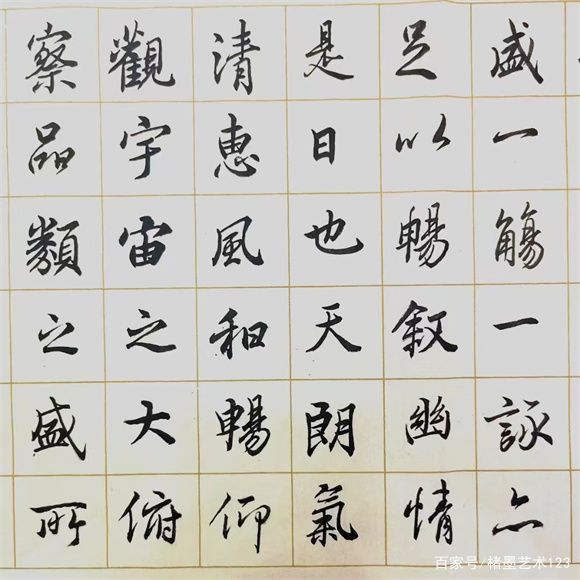 盛一觴一詠亦
足以暢叙幽情
是日也天朗氣
清惠風和暢仰
觀宇宙之大俯
察品類之盛所
百家号/楮墨艺术123